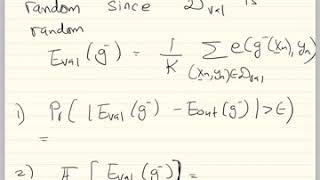 random since D_val is
random
E_val(g⁻) = 1/K Σ_{(x_n, y_n)∈D_val} e(g⁻(x_n), y_n)
1) Pr( |E_val(g⁻) - E_out(g⁻)| > ε )
=
2) 𝔼 [ E_val(g⁻) ] =